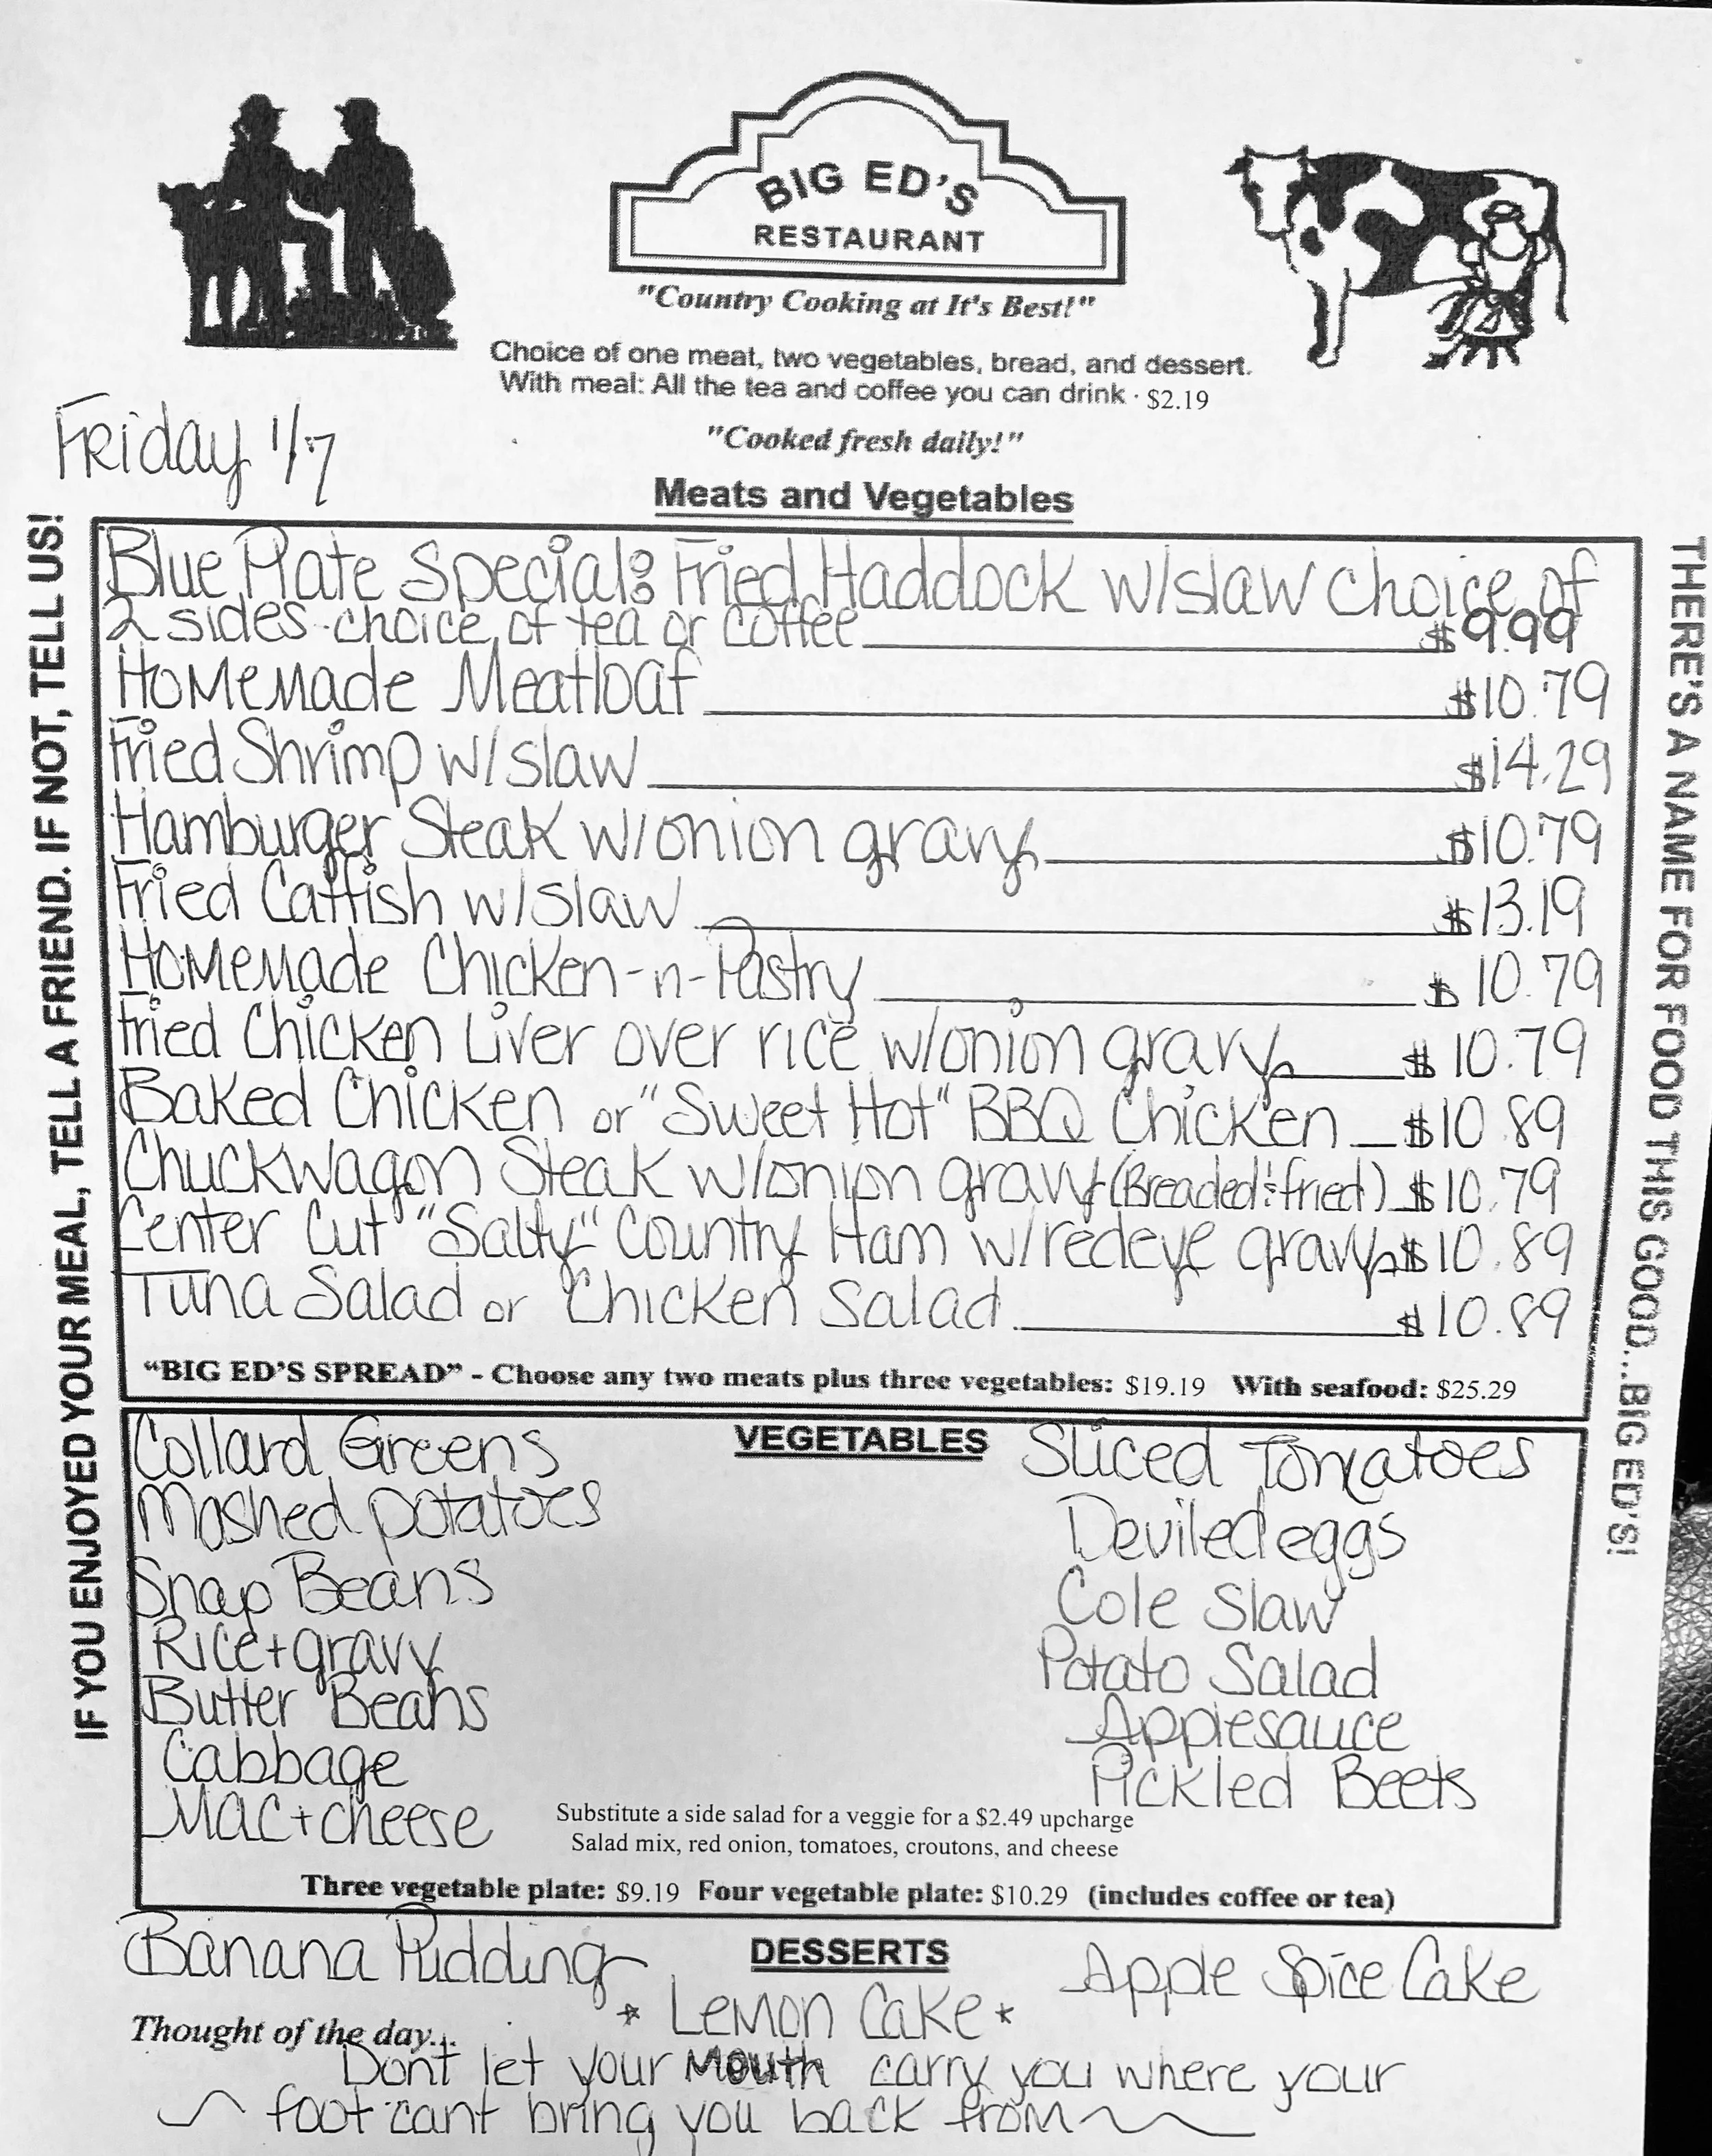 BIG ED'S
RESTAURANT
"Country Cooking at It's Best!"
Choice of one meat, two vegetables, bread, and dessert.
With meal: All the tea and coffee you can drink · $2.19
"Cooked fresh daily!"
Friday 1/7
Meats and Vegetables
IF YOU ENJOYED YOUR MEAL, TELL A FRIEND. IF NOT, TELL US!
Blue Plate Special: Fried Haddock w/slaw choice of
2 sides choice of tea or coffee $9.99
Homemade Meatloaf $10.79
Fried Shrimp w/slaw $14.29
Hamburger Steak w/onion gravy $10.79
Fried Catfish w/slaw $13.19
Homemade Chicken-n-Pastry $10.79
Fried Chicken Liver over rice w/onion gravy $10.79
Baked Chicken or "Sweet Hot" BBQ Chicken $10.89
Chuckwagon Steak w/onion gravy (Breaded & fried) $10.79
Center Cut "Salty" Country Ham w/redeye gravy $10.89
Tuna Salad or Chicken Salad $10.89
"BIG ED'S SPREAD" - Choose any two meats plus three vegetables: $19.19 With seafood: $25.29
THERE'S A NAME FOR FOOD THIS GOOD...BIG ED'S!
VEGETABLES
Collard Greens
Mashed potatoes
Snap Beans
Rice + gravy
Butter Beans
Cabbage
Mac + cheese
Sliced Tomatoes
Deviled eggs
Cole Slaw
Potato Salad
Applesauce
Pickled Beets
Substitute a side salad for a veggie for a $2.49 upcharge
Salad mix, red onion, tomatoes, croutons, and cheese
Three vegetable plate: $9.19 Four vegetable plate: $10.29 (includes coffee or tea)
DESSERTS
Banana Pudding
* Lemon Cake *
Apple Spice Cake
Thought of the day...
Dont let your mouth carry you where your
foot cant bring you back from